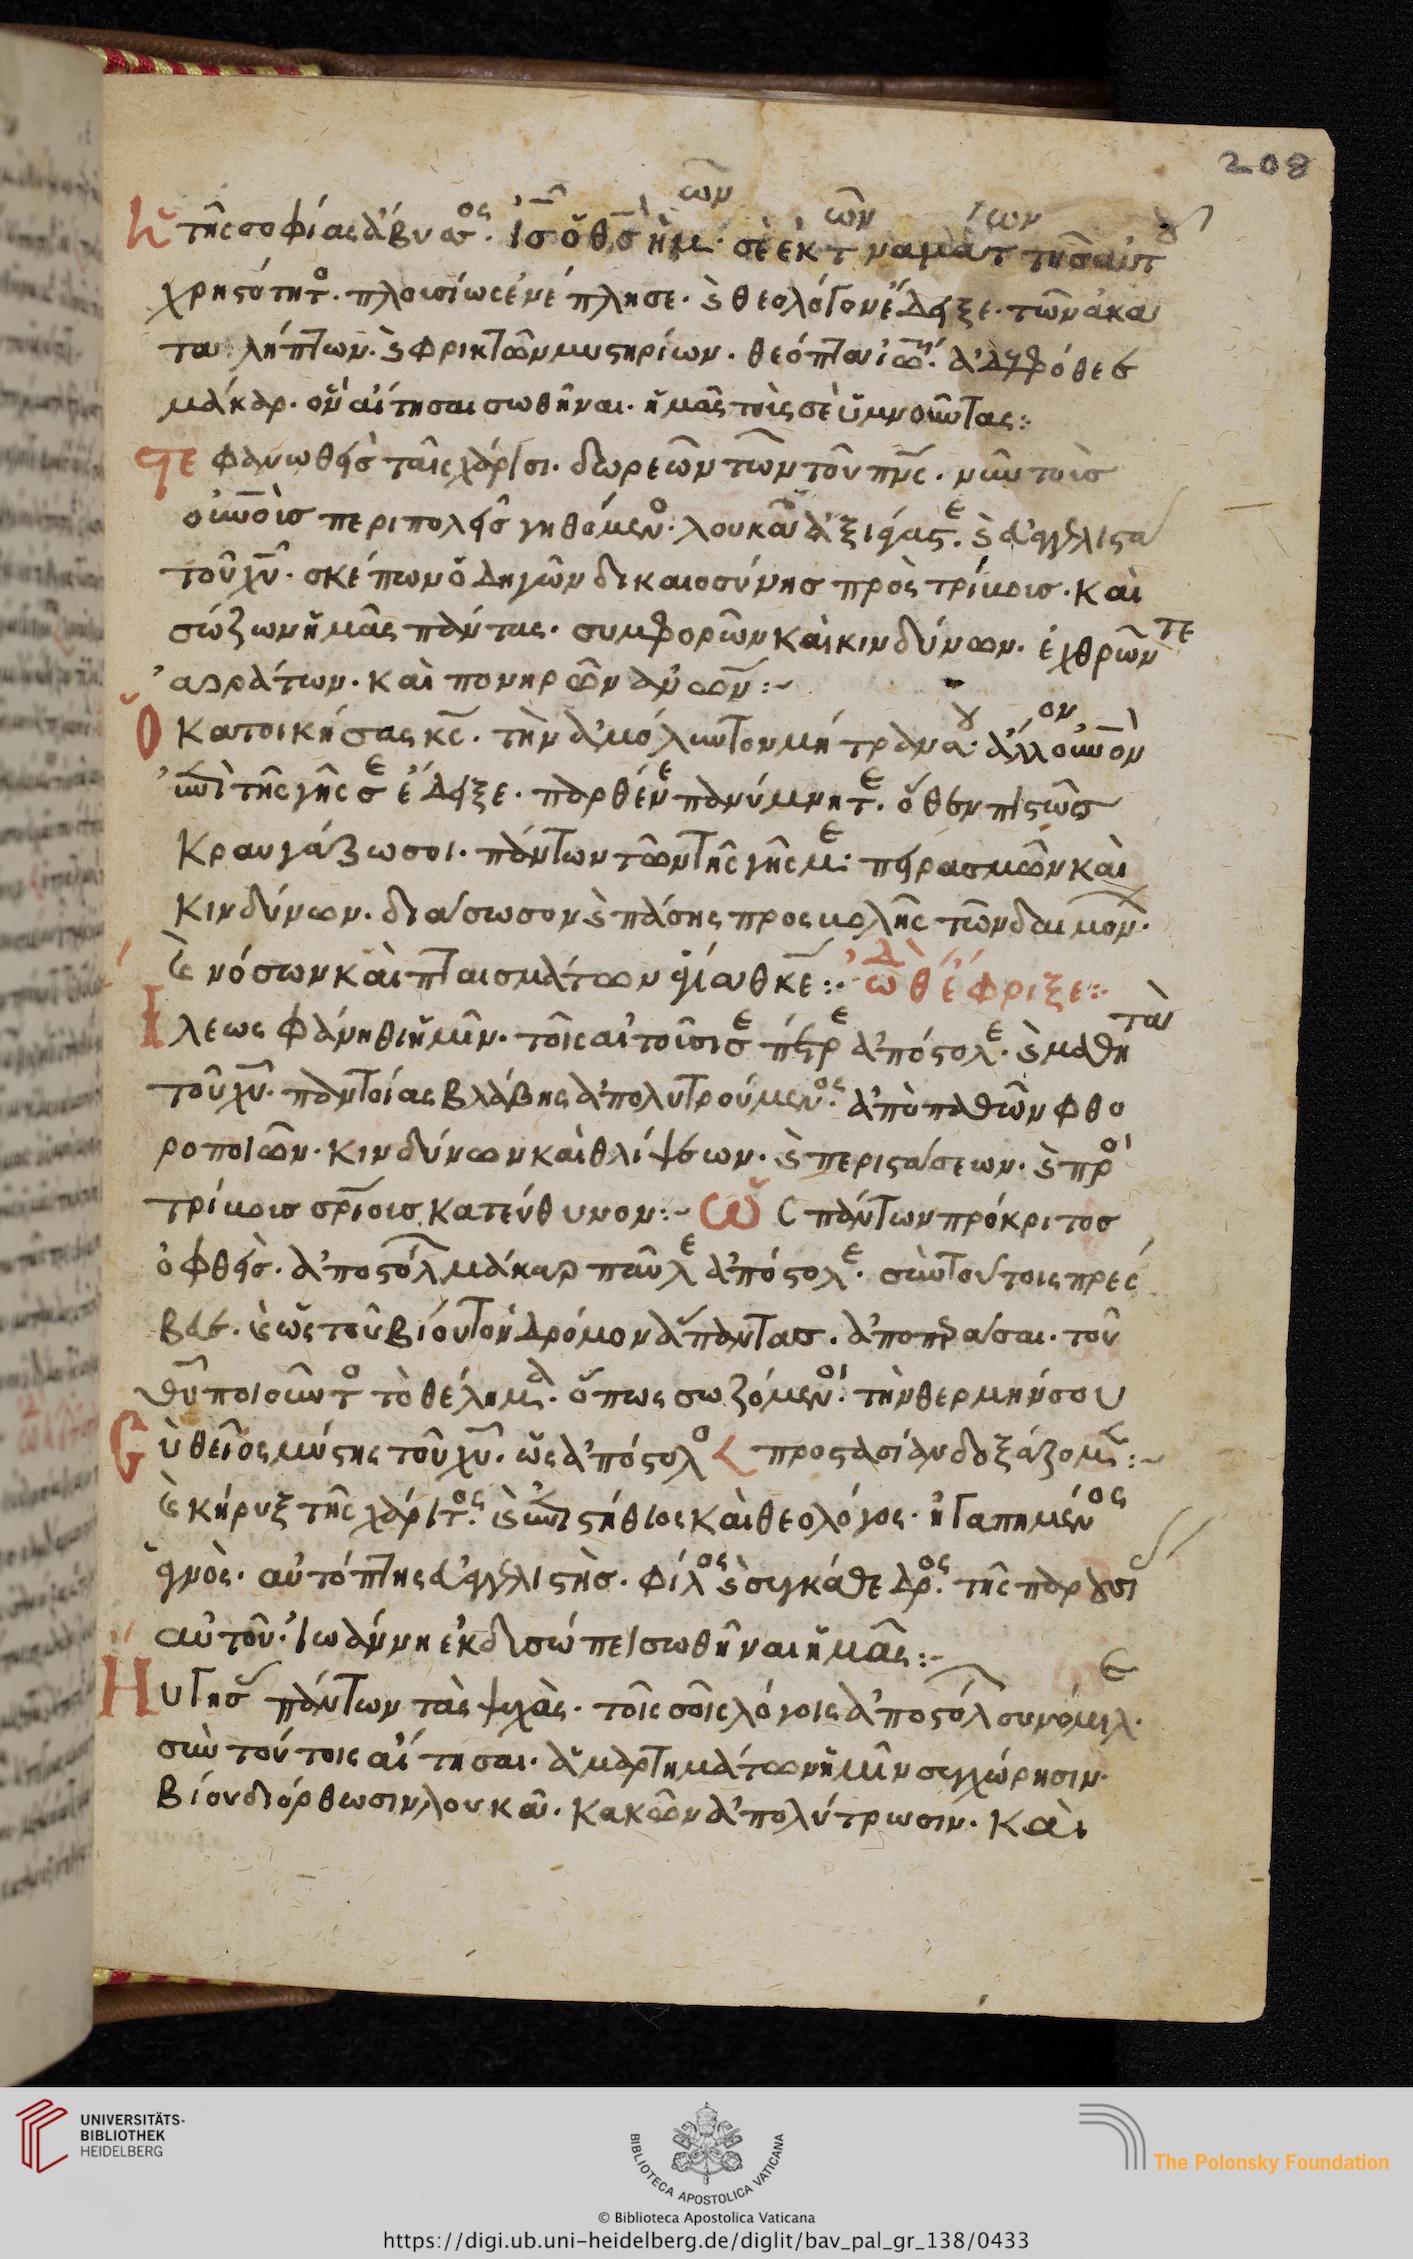 208
Ἡ τῆς σοφίας ἄβυσσος. Ἰς ὁ θς ἡμῶν. σὲ ἐκ τῶν ναμάτων τῆς αὐτοῦ
χρηστότητος. πλουσίως ἐνέπλησε. καὶ θεολόγον ἔδειξε. τῶν ἀκα
ταλήπτων. καὶ φρικτῶν μυστηρίων. θεόπτα ἰωάννη.
μάκαρ. ὃν αἴτησαι σωθῆναι. ἡμᾶς τοὺς σὲ ὑμνοῦντας:
Στεφανωθεὶς ταῖς χάρισι. δωρεῶν τῶν τοῦ πνς. νῦν τοὺς
οὐνοὺς περιπολεῖς γηθόμενος. λουκᾶ ἀξιάγαστε. καὶ εὐαγγελιστὰ
τοῦ χυ. σκέπων ὁδηγῶν δικαιοσύνης πρὸς τρίβους. καὶ
σώζων ἡμᾶς πάντας. συμφορῶν καὶ κινδύνων. ἐχθρῶν τε
ἀοράτων. καὶ πονηρῶν ἀνων:~
Ὁ κατοικήσας κς. τὴν ἀμόλυντον μήτραν σου. ἄλλον οὐνὸν
ἐπὶ τῆς γῆς σε ἔδειξε. παρθένε πανύμνητε. ὅθεν πιστῶς
κραυγάζω σοι. πάντων τῶν τῆς γῆς με. πειρασμῶν καὶ
κινδύνων. διάσωσον καὶ πάσης προσβολῆς τῶν δαιμόνων.
καὶ νόσων καὶ πταισμάτων θκε: ὠδὴ ἔφριξε:
Ἵλεως φάνηθι ἡμῖν. τοῖς αἰτοῦσί σε πέτρε ἀπόστολε. καὶ μαθητὰ
τοῦ χυ. παντοίας βλάβης ἀπολυτρούμενος. ἀπὸ παθῶν φθο
ροποιῶν. κινδύνων καὶ θλίψεων. καὶ περιστάσεων. καὶ πρὸς
τρίβους σρίους κατεύθυνον:~ Ὡς πάντων πρόκριτος
ὀφθεὶς. ἀποστόλων μάκαρ παῦλε ἀπόστολε. σὺν τούτοις πρέσ
βευε. καὶ ὡς τοῦ βίου τὸν δρόμον ἅπαντας. ἀποπερᾶσαι. τοῦ
θυ ποιοῦντος τὸ θέλημα. ὅπως σωζόμενοι. τὴν θερμήν σου
Σὺ θεῖος μύστης τοῦ χυ. ὡς ἀπόστολος προστασίαν δοξάζομεν:~
καὶ κήρυξ τῆς χάριτος. καὶ ἐπιστήθιος καὶ θεολόγος. ἠγαπημένος
ἁγνὸς. αὐτόπτης εὐαγγελιστὴς. φίλος καὶ συγκάθεδρος. τῆς παρουσίας
αὐτοῦ. ἰωάννη ἐκδυσώπει σωθῆναι ἡμᾶς:~
Ηὔγησας πάντων τὰς ψυχὰς. τοῖς σοῖς λόγοις ἀποστόλων συνόμιλε.
σὺν τούτοις αἴτησαι. ἁμαρτημάτων ἡμῖν συγχώρησιν.
βίου διόρθωσιν λουκᾶ. κακῶν ἀπολύτρωσιν. καὶ
UNIVERSITÄTS-
BIBLIOTHEK
HEIDELBERG
BIBLIOTECA APOSTOLICA VATICANA
The Polonsky Foundation
© Biblioteca Apostolica Vaticana
https://digi.ub.uni-heidelberg.de/diglit/bav_pal_gr_138/0433